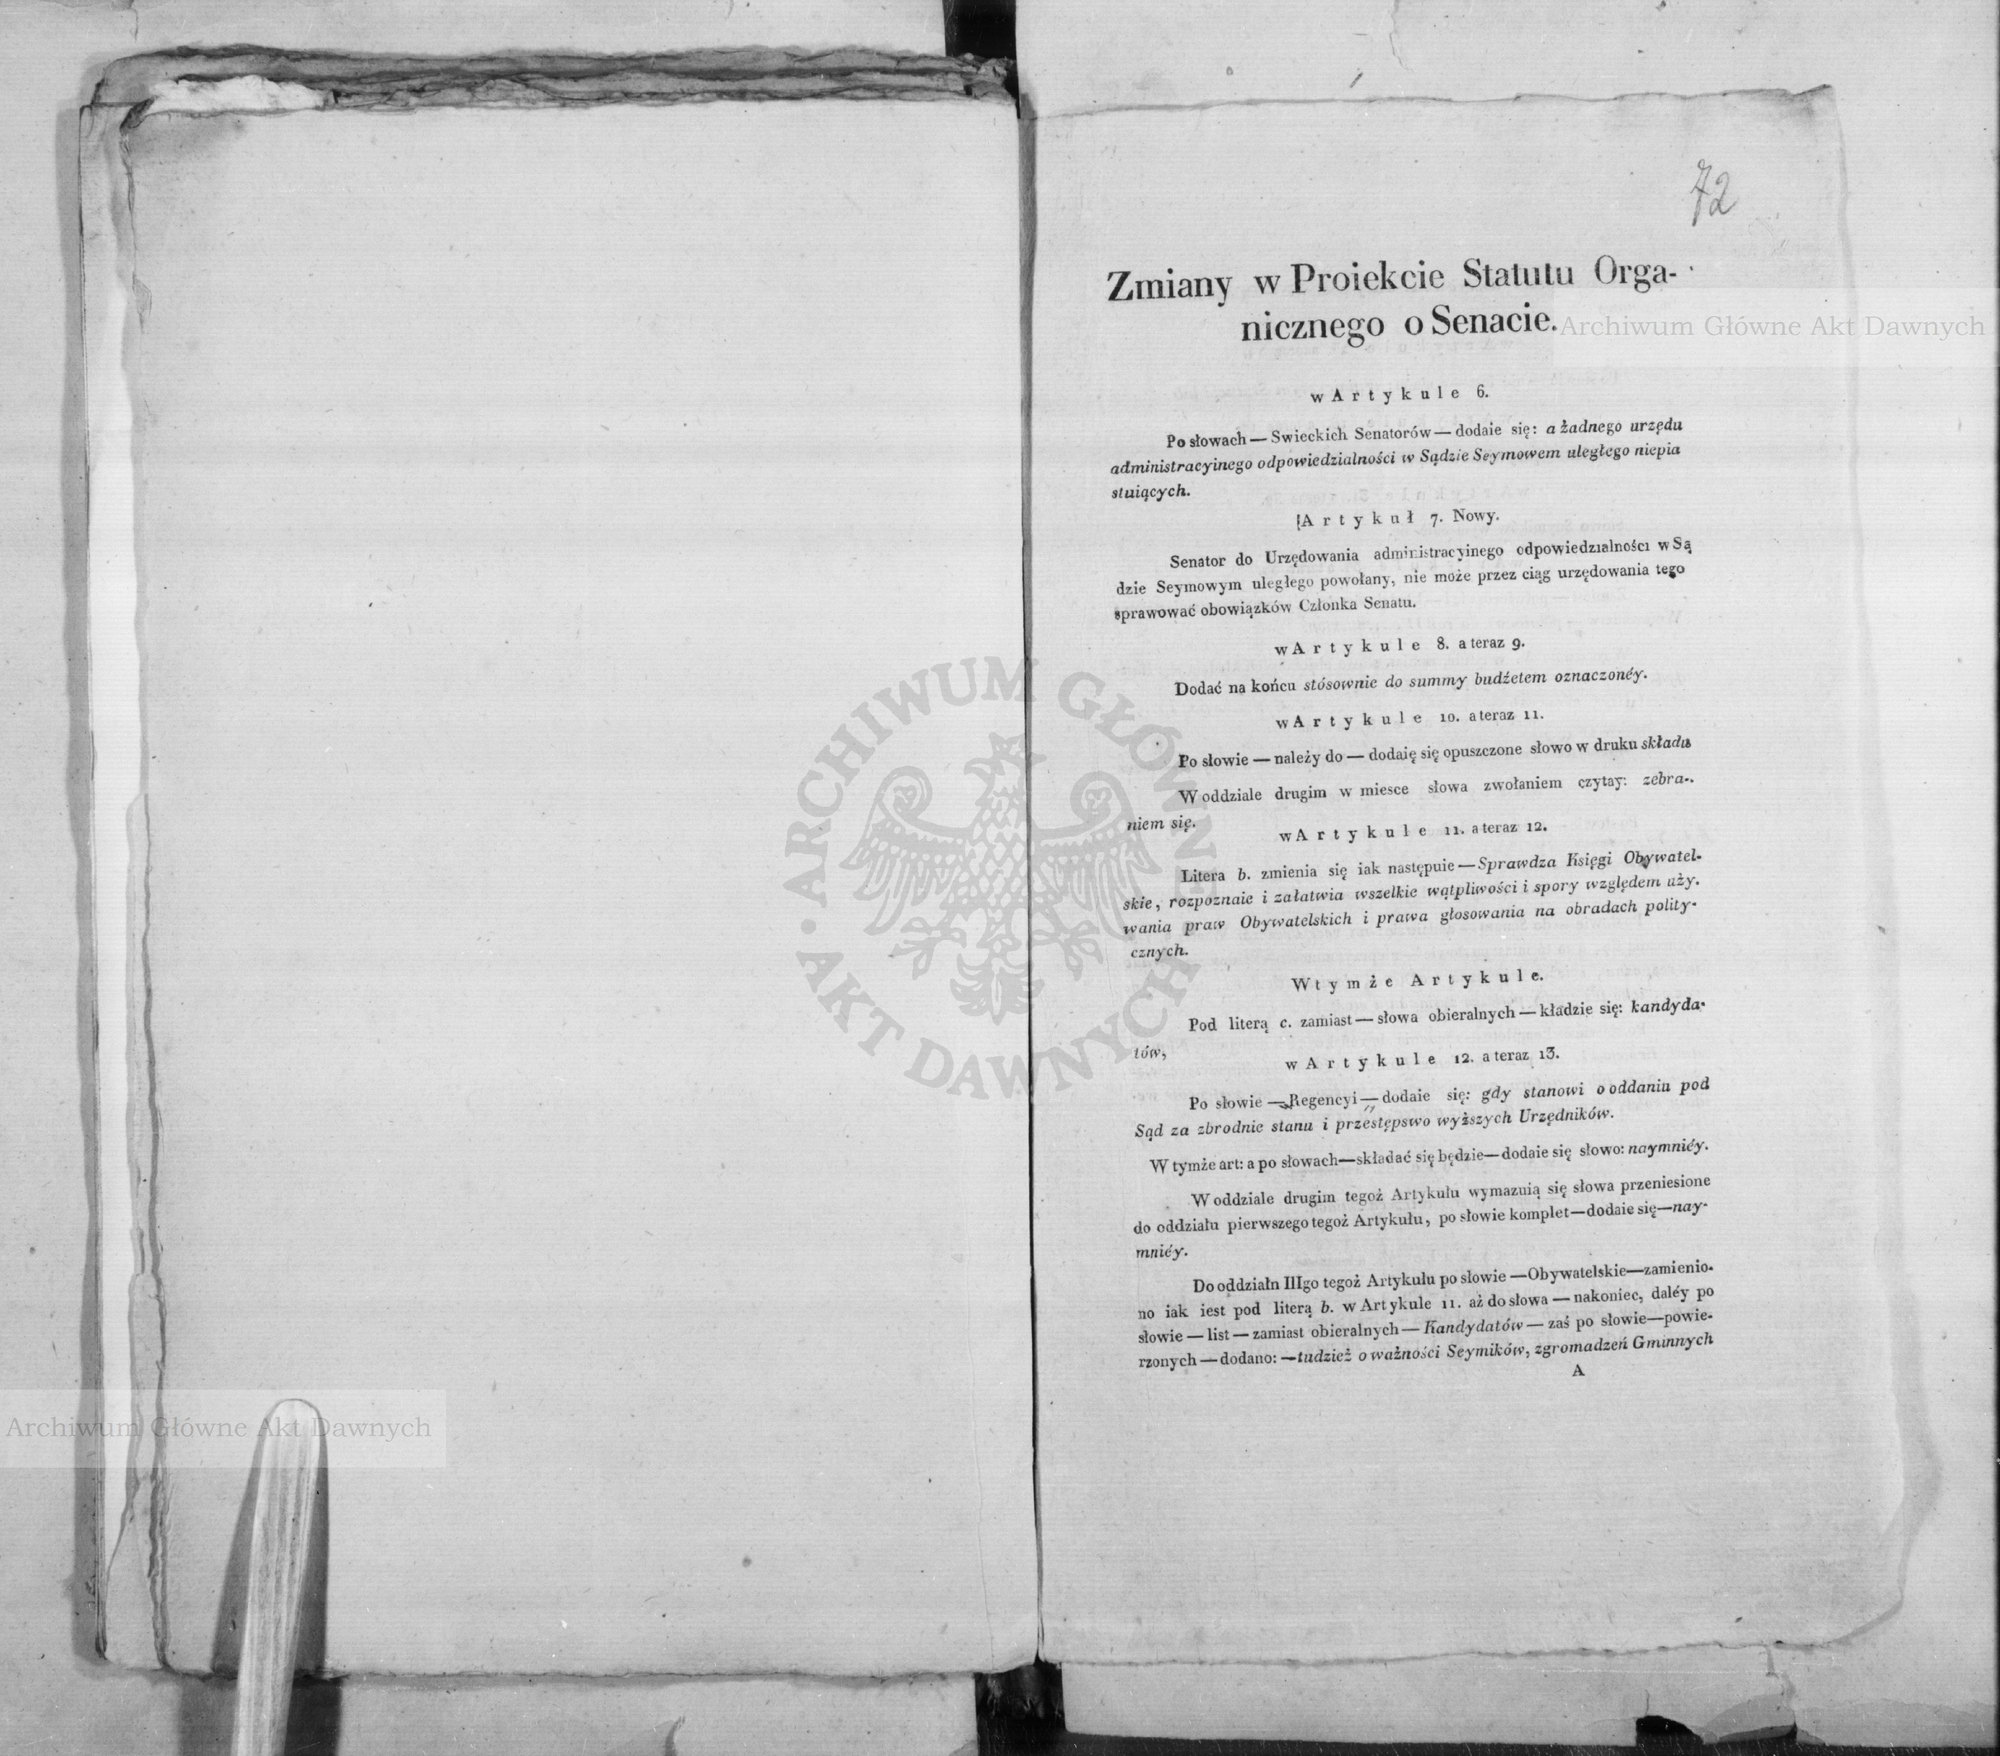 72
Zmiany w Proiekcie Statutu Orga-
nicznego o Senacie.
w Artykule 6.
Po słowach — Swieckich Senatorów — dodaie się: a żadnego urzędu
administracyinego odpowiedzialności w Sądzie Seymowem uległego niepia
stuiących.
Artykuł 7. Nowy.
Senator do Urzędowania administracyinego odpowiedzialności w Są
dzie Seymowym uległego powołany, nie może przez ciąg urzędowania tego
sprawować obowiązków Członka Senatu.
w Artykule 8. a teraz 9.
Dodać na końcu stósownie do summy budżetem oznaczonéy.
w Artykule 10. a teraz 11.
Po słowie — należy do — dodaię się opuszczone słowo w druku składu
W oddziale drugim w miesce słowa zwołaniem czytay: zebra-
niem się.
w Artykule 11. a teraz 12.
Litera b. zmienia się iak następuie — Sprawdza Księgi Obywatel-
skie, rozpoznaie i załatwia wszelkie wątpliwości i spory względem uży-
wania praw Obywatelskich i prawa głosowania na obradach polity-
cznych.
W tymże Artykule.
Pod literą c. zamiast — słowa obieralnych — kładzie się: kandyda-
tów,
w Artykule 12. a teraz 13.
Po słowie — Regencyi — dodaie się: gdy stanowi o oddaniu pod
Sąd za zbrodnie stanu i przestępswo wyższych Urzędników.
W tymże art: a po słowach—składać się będzie—dodaie się słowo: naymniéy.
W oddziale drugim tegoż Artykułu wymazuią się słowa przeniesione
do oddziału pierwszego tegoż Artykułu, po słowie komplet—dodaie się—nay-
mniéy.
Do oddziałn IIIgo tegoż Artykułu po słowie — Obywatelskie—zamienio-
no iak iest pod literą b. w Artykule 11. aż do słowa — nakoniec, daléy po
słowie — list — zamiast obieralnych — Kandydatów — zaś po słowie—powie-
rzonych — dodano: —tudzież o ważności Seymików, zgromadzeń Gminnych
A
Archiwum Główne Akt Dawnych
ARCHIWUM GŁÓWNE
AKT DAWNYCH
Archiwum Główne Akt Dawnych